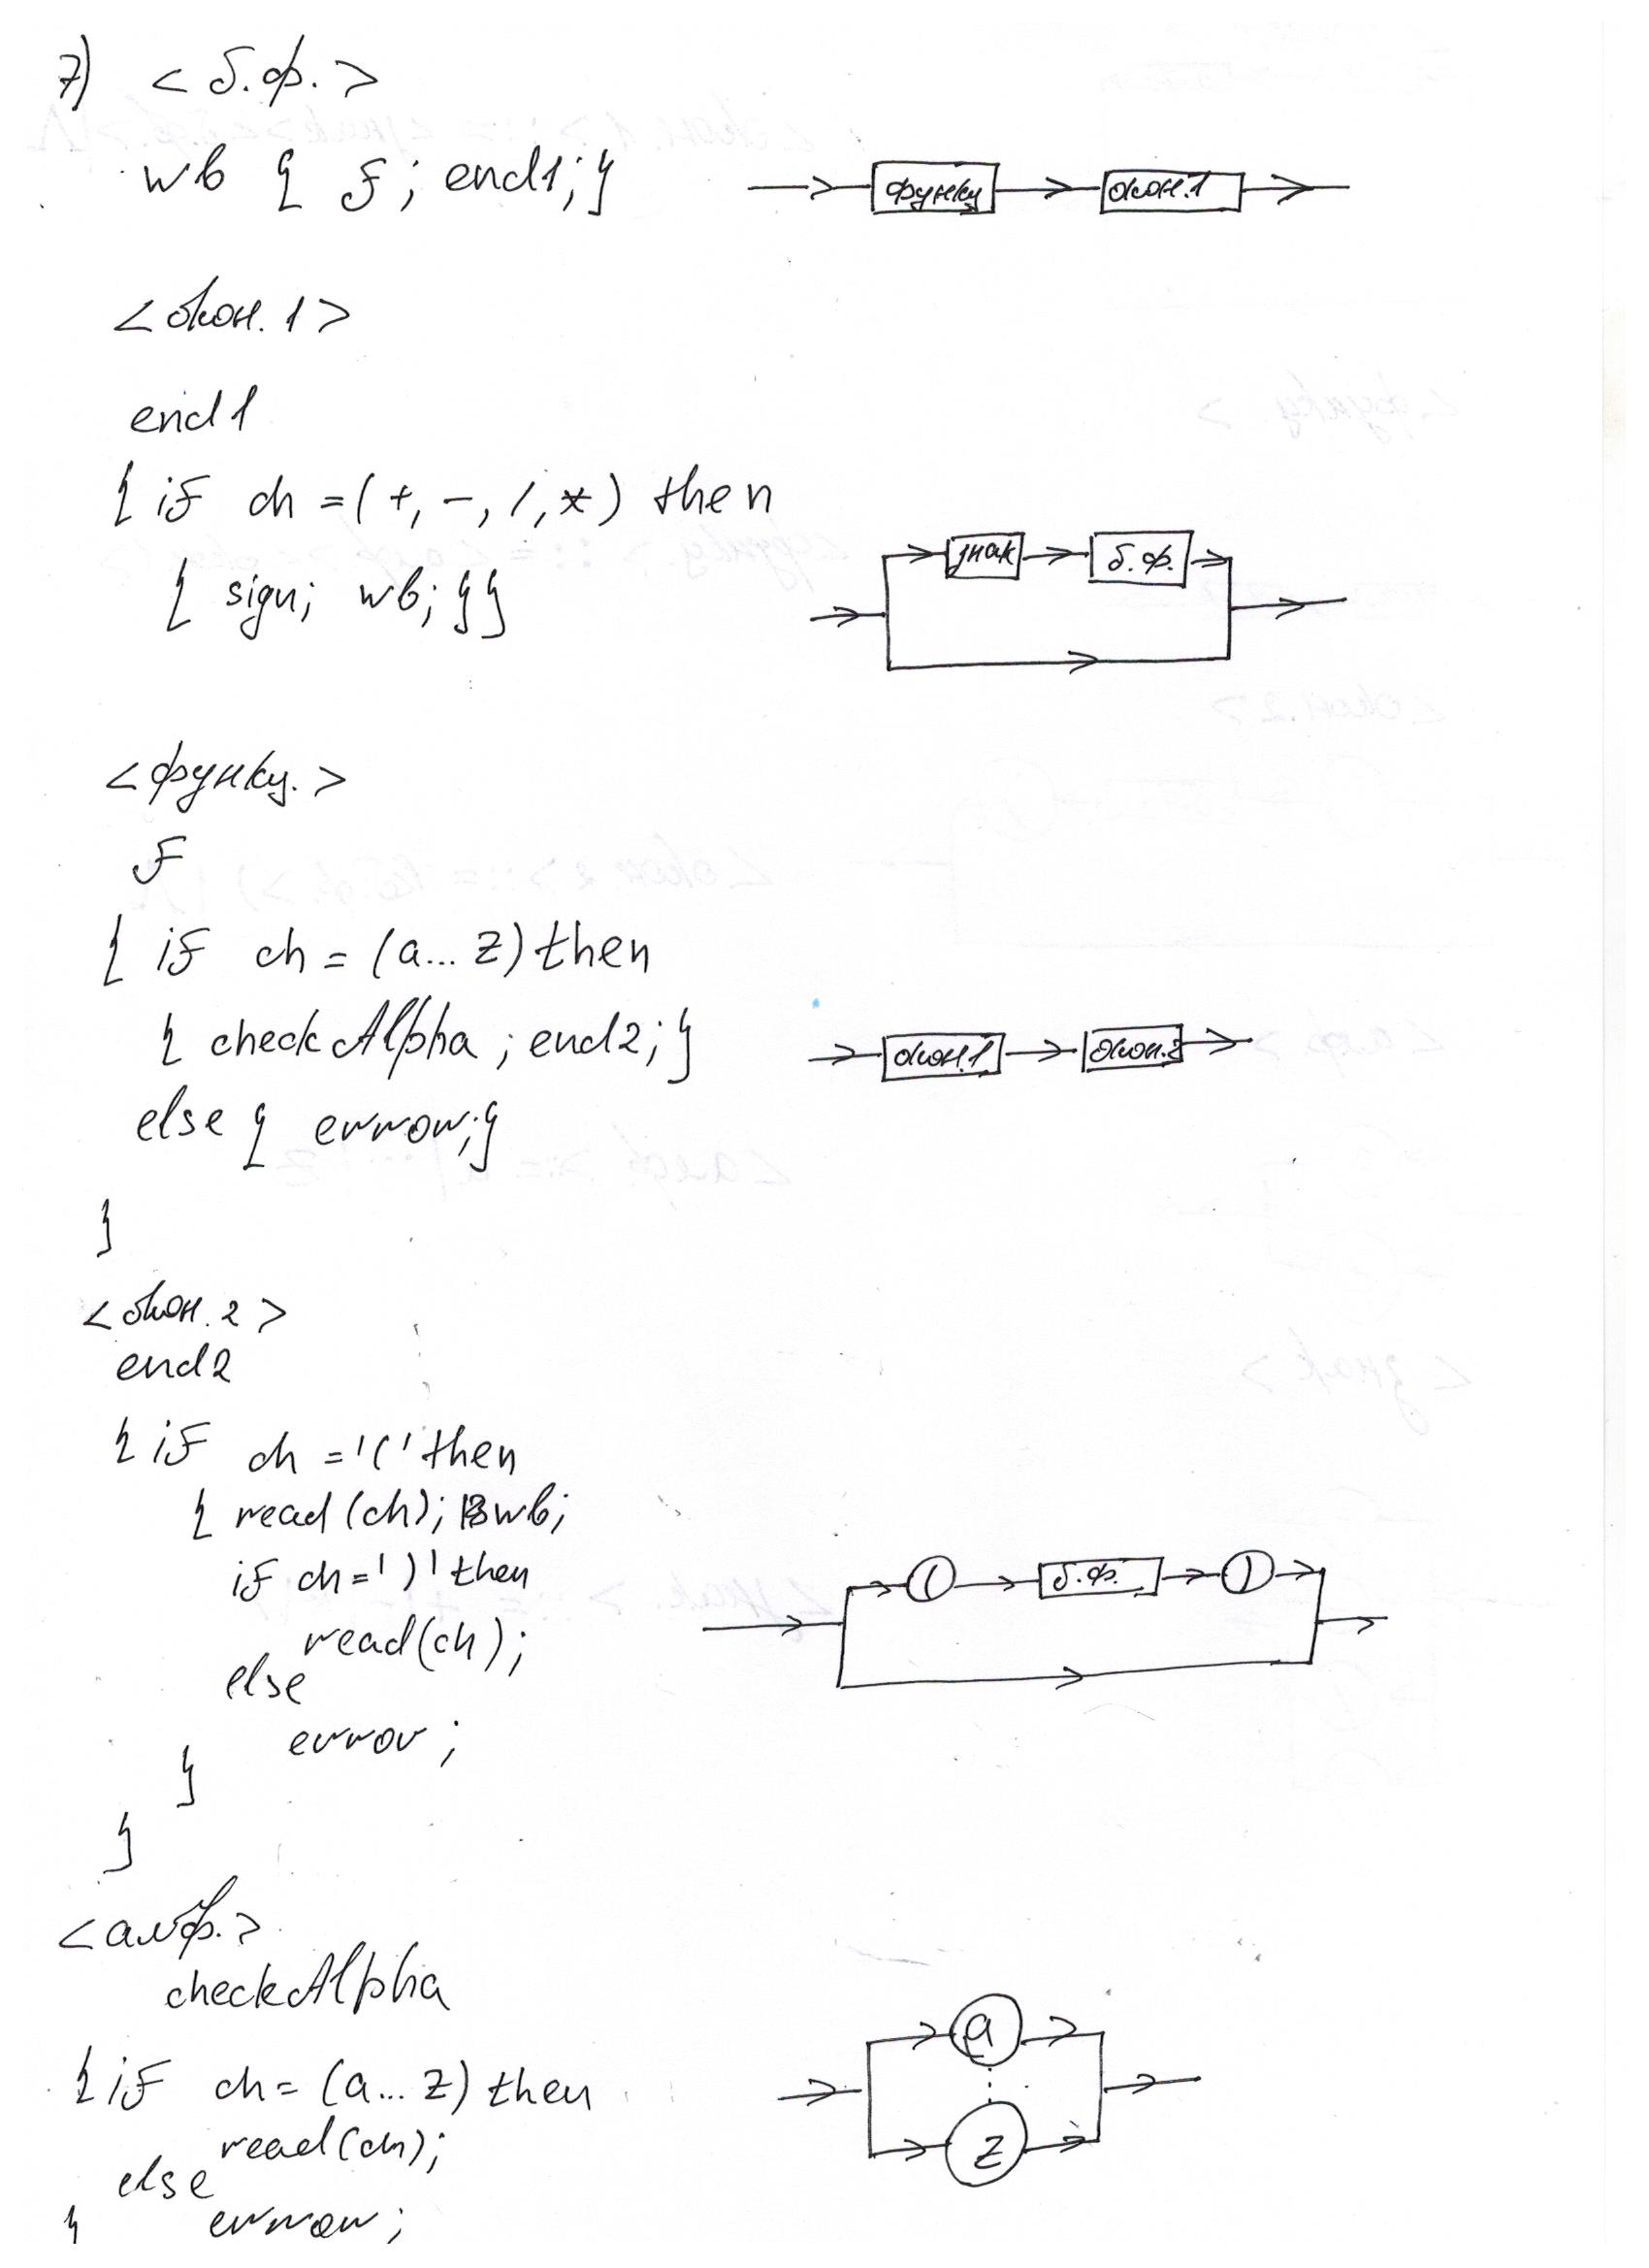 7) <б.ф.>
wb { f; end1; }
функц окон.1
<окон.1>
end1
{ if ch = (+, -, /, *) then
{ sign; wb; } }
знак б.ф.
<функц.>
f
{ if ch = (a... z) then
{ checkAlpha ; end2; }
окон.1 окон.2
else { error; }
}
<окон.2>
end2
{ if ch = '(' then
{ read (ch); wb;
if ch = ')' then
( б.ф. )
read (ch);
else
error ;
}
}
<алф.>
checkAlpha
a
{ if ch = (a... z) then
read (ch);
z
else
} error ;